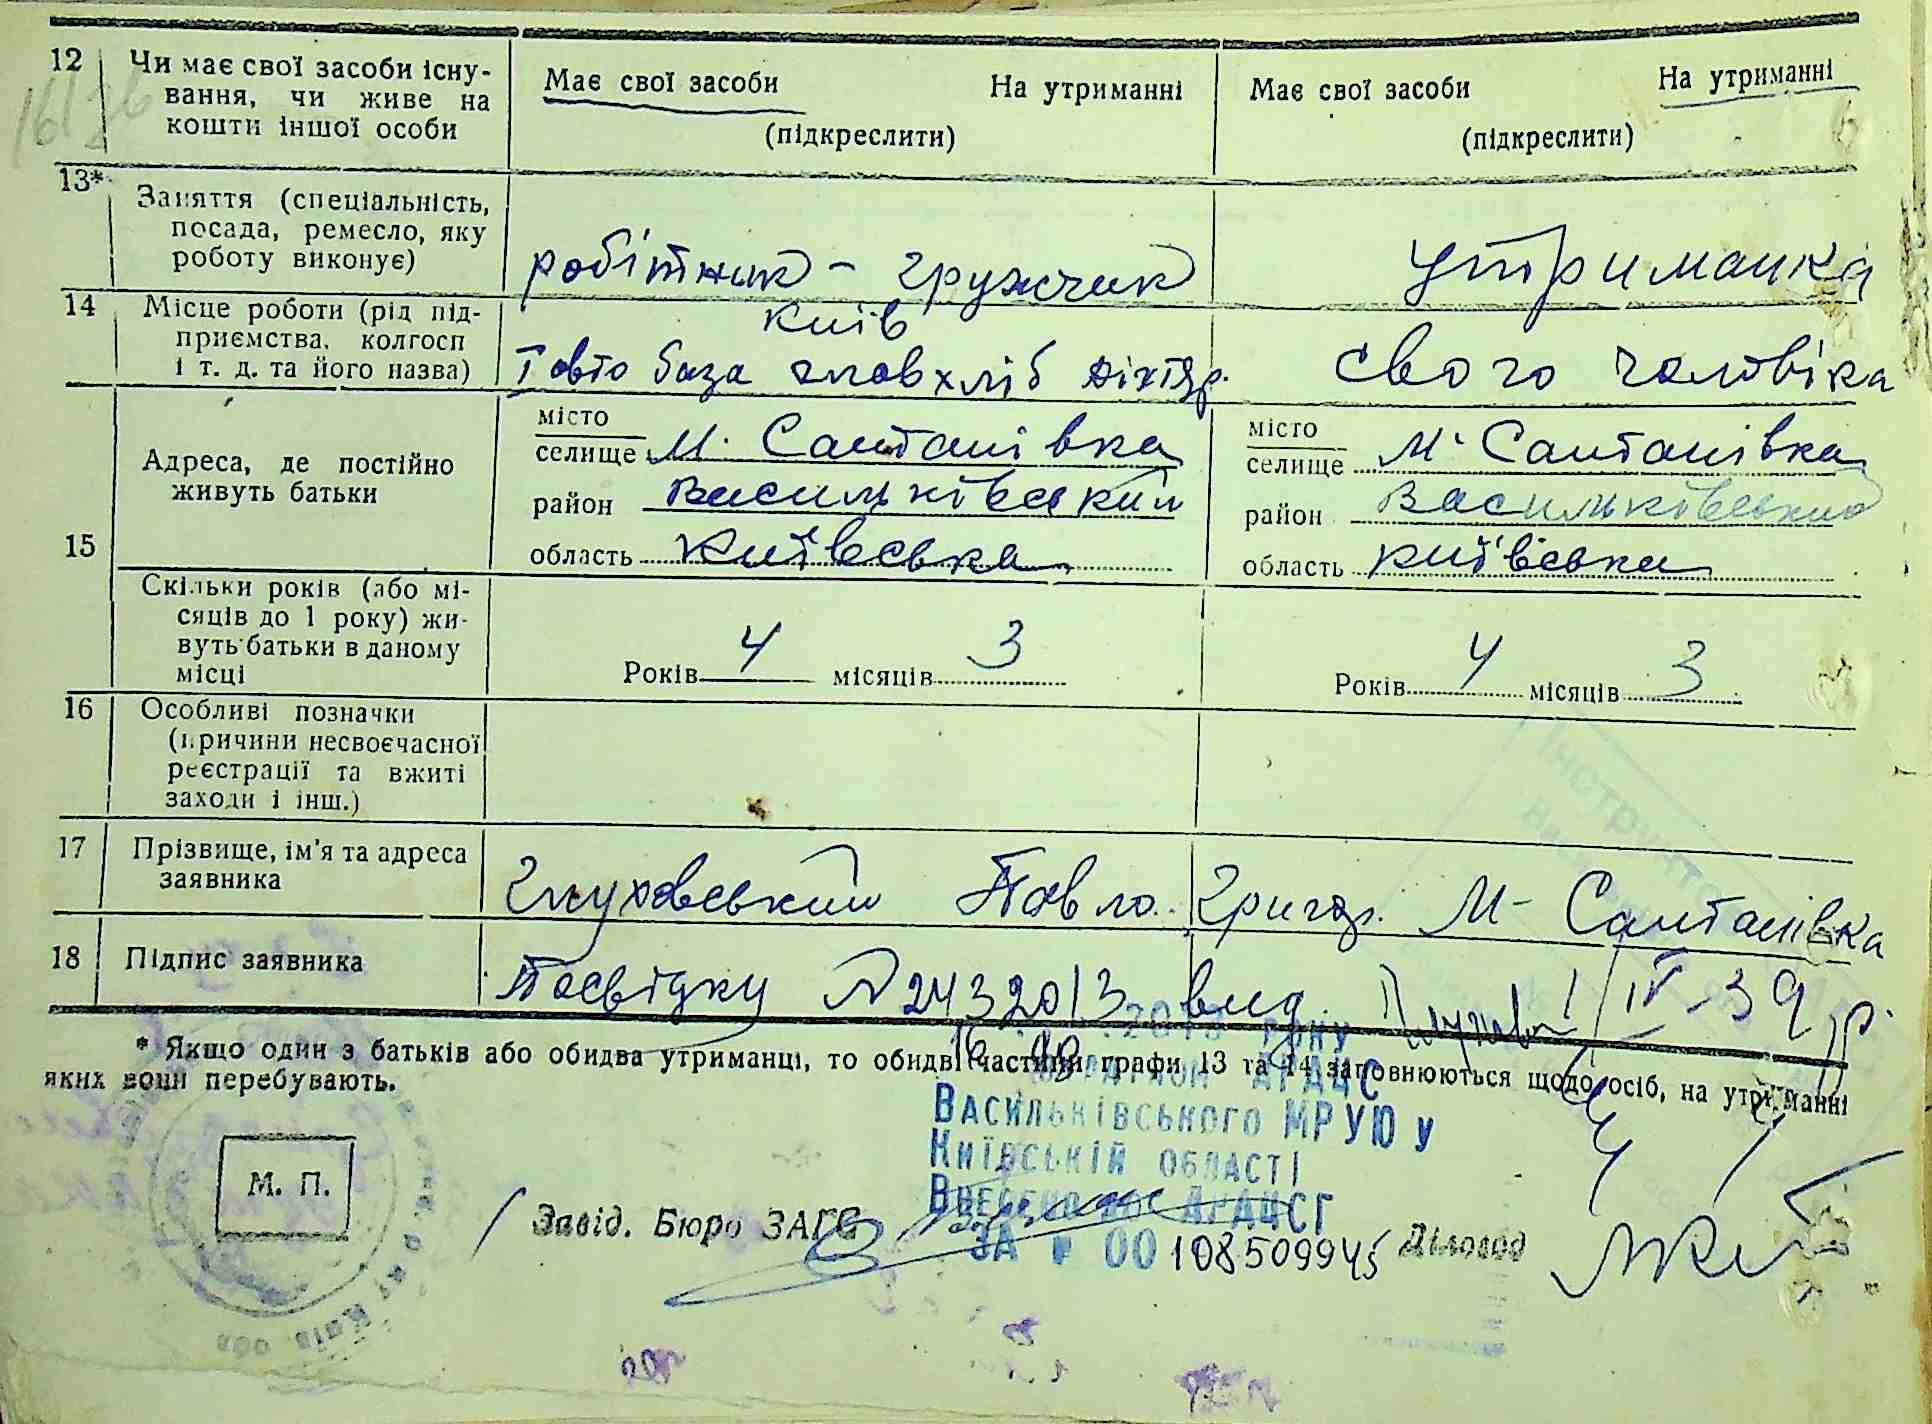 12 Чи має свої засоби існу-
вання, чи живе на
кошти іншої особи
Має свої засоби На утриманні
(підкреслити)
Має свої засоби На утриманні
(підкреслити)
13* Заняття (спеціальність,
посада, ремесло, яку
роботу виконує)
робітник - гружчик
утриманка
14 Місце роботи (рід під-
приємства, колгосп
і т. д. та його назва)
Київ
база головхліб
свого чоловіка
15
Адреса, де постійно
живуть батьки
місто
селище м. Салтанівка
район Васильківський
область Київська
місто
селище м. Салтанівка
район Васильківський
область Київська
Скільки років (або мі-
сяців до 1 року) жи-
вуть батьки в даному
місці
Років 4 місяців 3
Років 4 місяців 3
16 Особливі позначки
(причини несвоєчасної
реєстрації та вжиті
заходи і інш.)
17 Прізвище, ім'я та адреса
заявника
Глуховський Павло Григор. М-Салтанівка
18 Підпис заявника
Посвідку № 2432013 вид. 1/IV-39 р.
* Якщо один з батьків або обидва утриманці, то обидві частини графи 13 та 14 заповнюються щодо осіб, на утриманні
яких вони перебувають.
2013 року
ДРАЦС
Васильківського МРУЮ у
Київській області
Внесено до ДРАЦСГ
за № 00108509945
М. П.
Завід. Бюро ЗАГС
Діловод